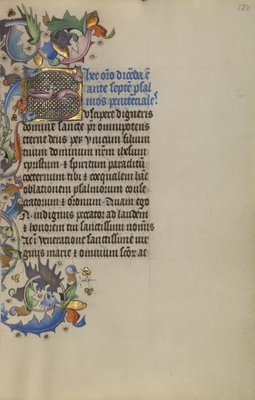 124
hec oro dicēda ē
ante septē psal
mos penitēciale
Suscipere digneris
domine sancte pr̄ omnipotens
eterne deus per vnicum filium
tuum dominum nrm̄ ihesum
xpristum & spiritum paraclitū
coeternum tibi & coequalem hāc
oblationem psalmorum conse
cratorum & oronum Quam ego
indignus peccator ad laudem
& honorem tui sanctissimi nomīs
& ī veneratione sanctissime vir
ginis marie & omnium scōr ac